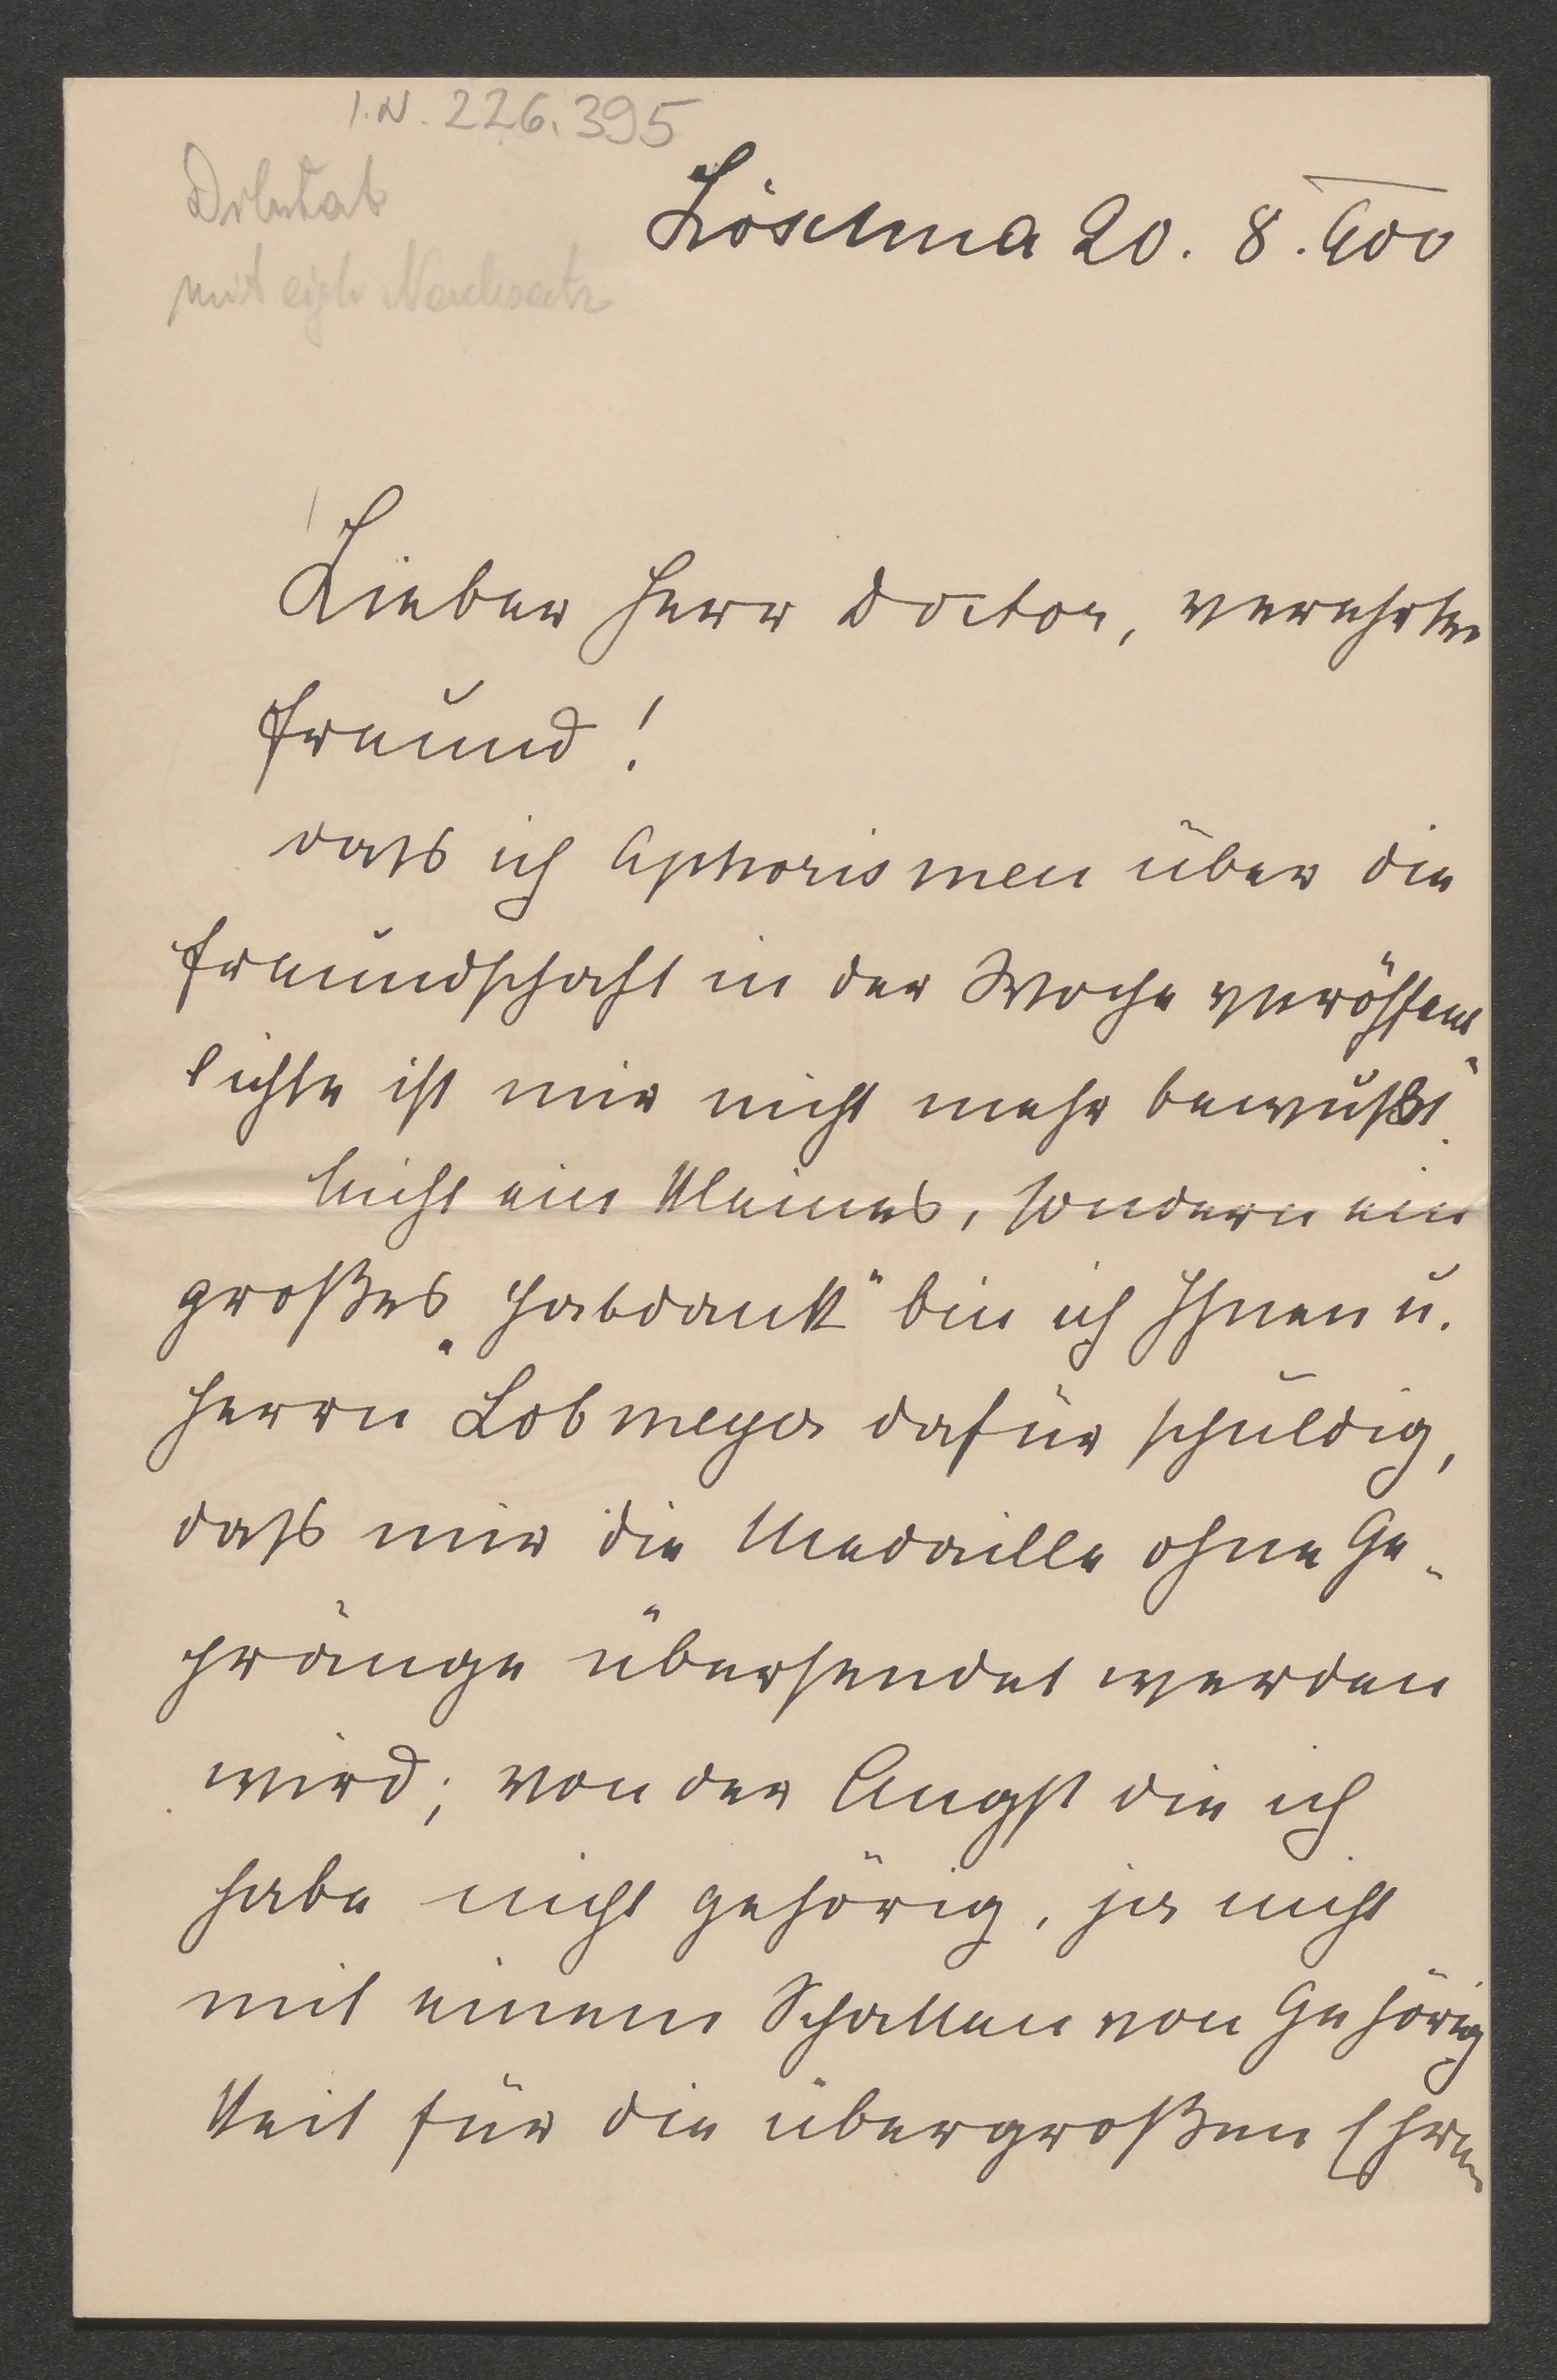 I.N. 226.395
Diktat
mit eigh Nachsatz
Löschna 20. 8. 900
Lieber Herr Doctor, verehrter
Freund!
dass ich Aphorismen über die
Freundschaft in der Woche veröffent-
lichte ist mir nicht mehr bewußt.
Nicht ein kleines, sondern ein
großes „Habdank" bin ich Ihnen u.
Herrn Lobmeyr dafür schuldig,
dass mir die Medaille ohne Ge-
pränge übersendet werden
wird; von der Angst die ich
habe nicht gehörig, ja nicht
mit einem Schatten von Gehörig
keit für die übergroßen Ehren